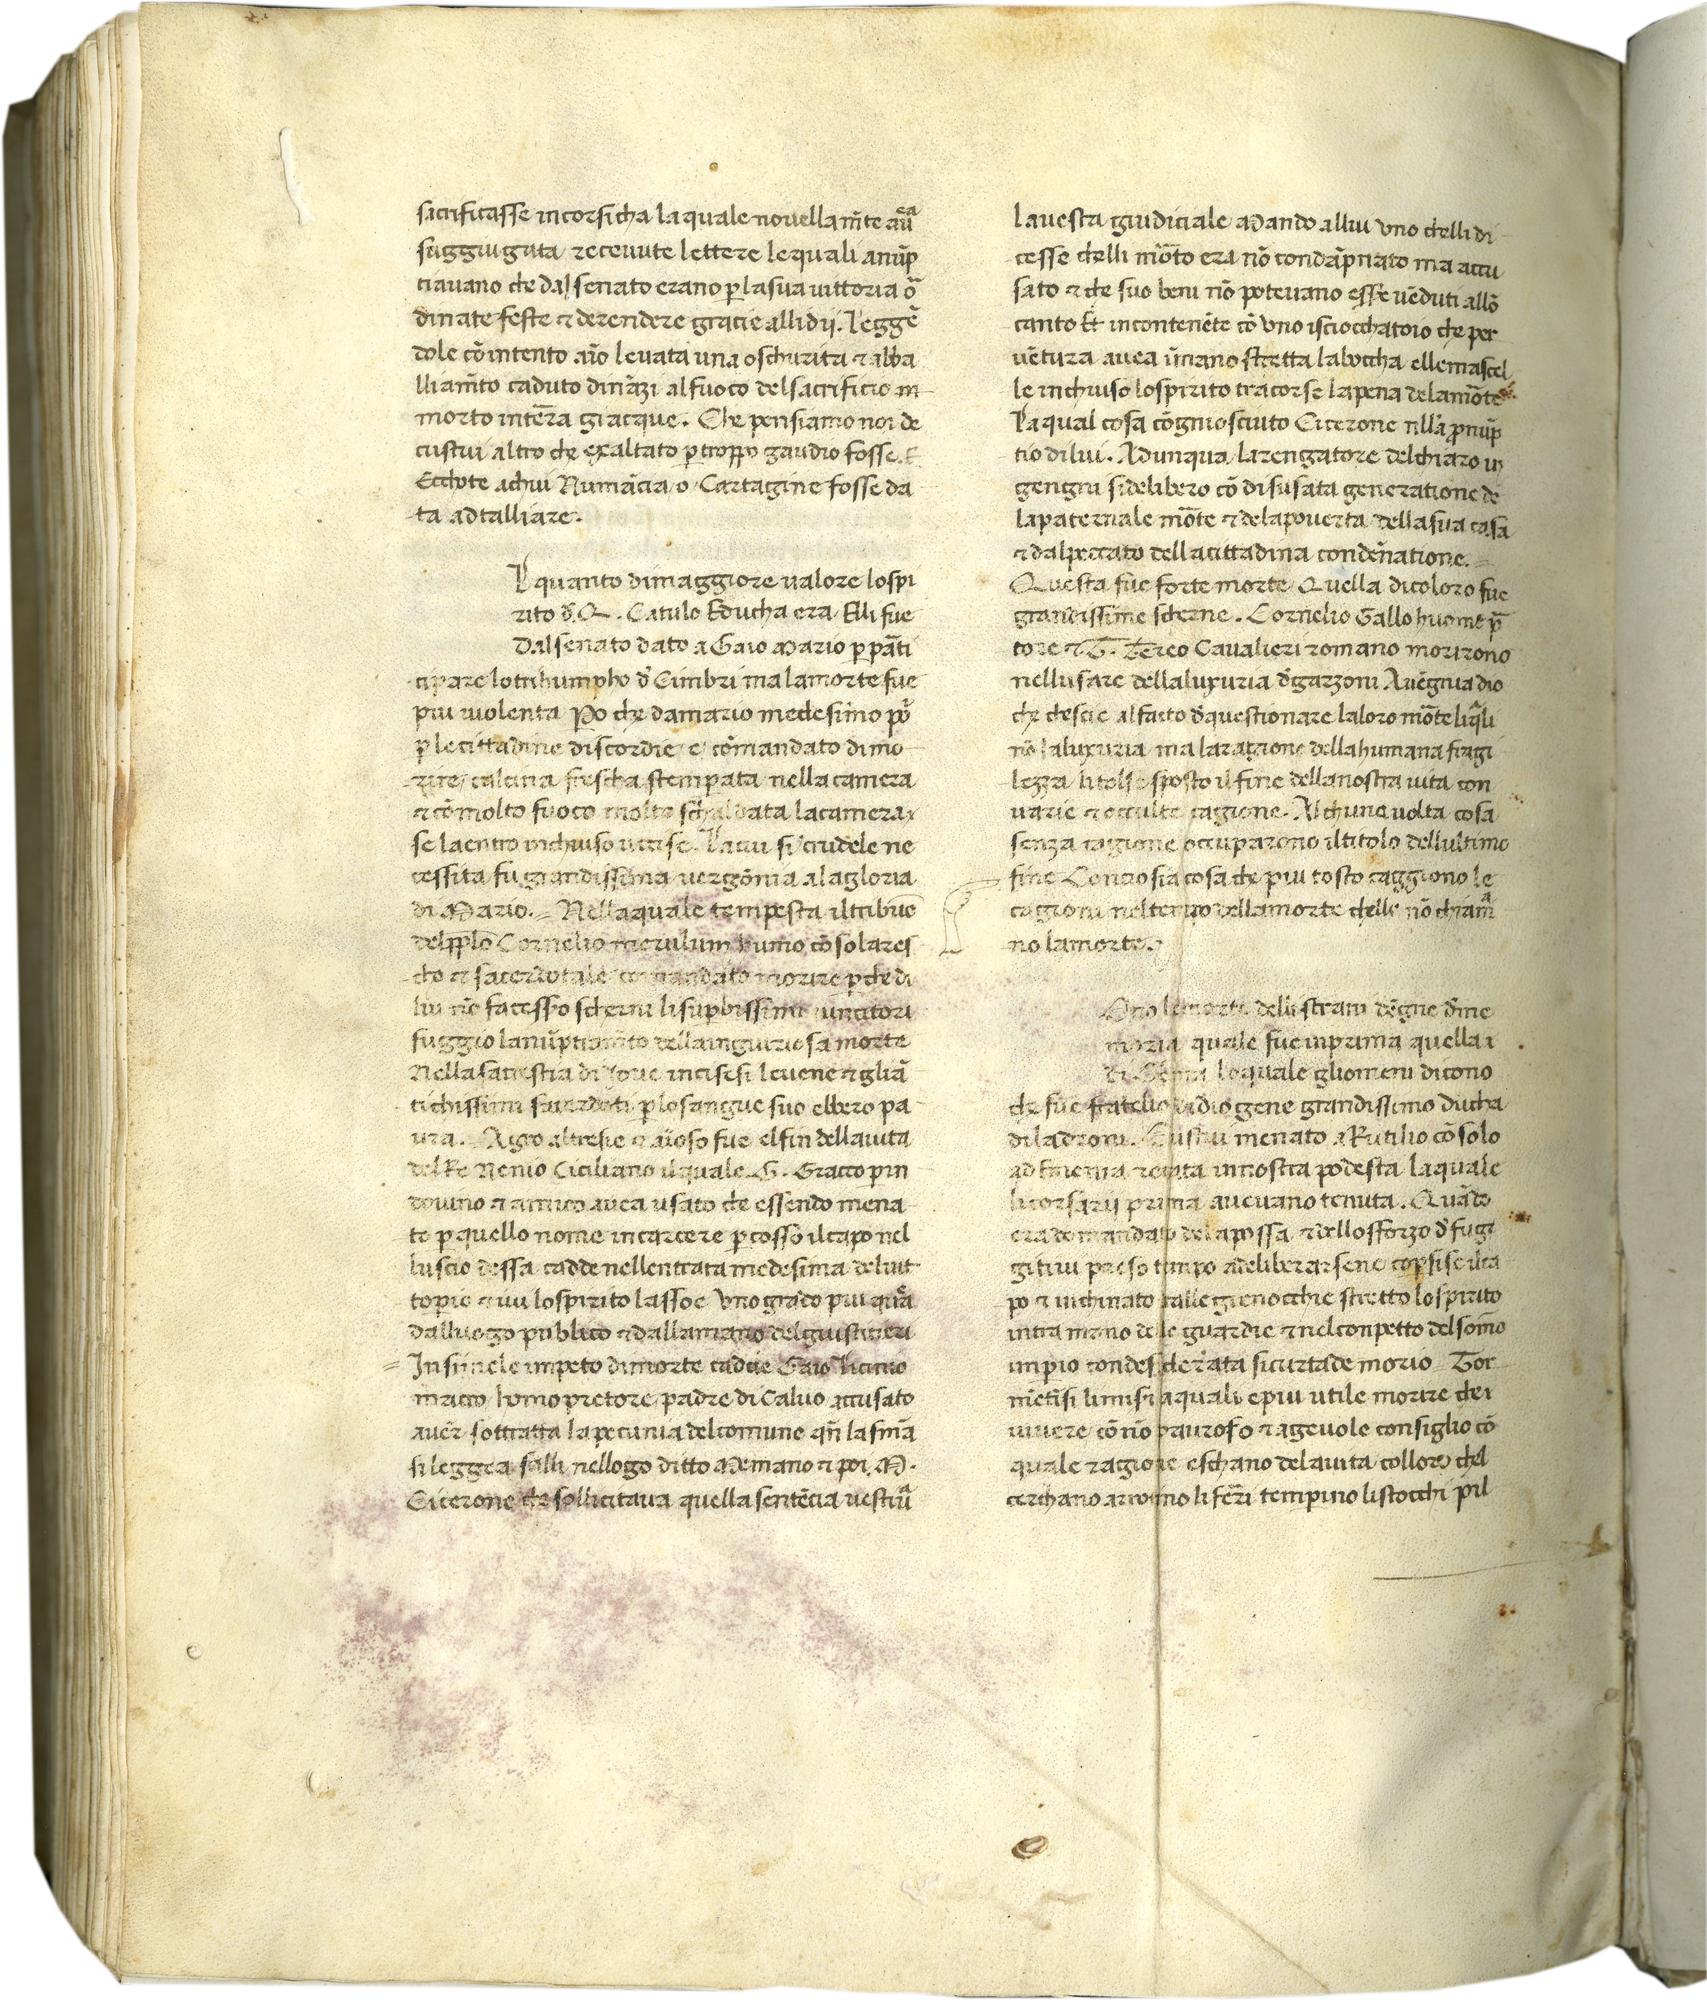 sacrificasse in corsicha la quale novellam̄te aūa
suggiugata recevute lettere le quali anūp
tiavano che dal senato erano ꝑ la sua vittoria o᷉
dinate feste ⁊ de rendere gracie alli dij. Leggē
dole cō intento aīo levata una oschurita ⁊ abba
lliam̄to caduto dināzi al fuoco del sacrificio in
morto in terra giacque. Che pensiamo noi de
custui altro che exaltato ꝑ troppo gaudio fosse.
Ecchote a chui Numācia o Cartagine fosse da
ta ad talliare.
quanto di maggiore valore lo spi
rito d̄ Q. Catulo Educha era Elli fue
Dal senato dato a Gaio Mario ꝑ pāti
cipare lo trihumpho d̄ Cimbri ma la morte fue
piu violenta Po che da mario medesimo
ꝑ le cittadine discordie e comandato di mo
rire calcina frescha stemperata nella camera
⁊ cō molto fuoco molto schaldata la camera
se la entro inchiuso uccise. La cui si crudele ne
cessita fu grandissima vergōnia a la gloria
di Mario. Nella quale tempesta il tribuo
del pplo Cornelio merulum humo cōsolares
cho ⁊ sacerdotale comandato morire ꝑche di
lui nō facesso scherni li suꝑbissimi vincitori
fuggio lanūptiam̄to della ingiuriosa morte
Nella sacrestia di Jove incisesi le vene ⁊ gli ā
tichissimi sacerdoti ꝑ lo sangue suo ebbero pa
ura. Agro altresie ⁊ aīoso fue el fin della vita
del Re Nenio Ciciliano il quale G. Gracco ꝑ in
dovino ⁊ amico avea usato che essendo mena
to ꝑ quello nome in carcere ꝑcosso il capo nel
luscio dessa cadde nellentrata medesima del vit
topio ⁊ ivi lo spirito lassoe Uno grado piu
dalluogo publico ⁊ dalla mano del giustitieri
In simele impeto di morte caddе Gaio Licinio
macro homo pretore padre di Calvo accusato
aver sottratta la pecunia del comune qn̄ la sn̄ia
si leggea salli nellogo ditto Memano ⁊ poi M.
Cicerone che sollicitava quella sentēcia vestiua
la vesta giudiciale Mando a llui uno chelli di
cesse chelli morto era nō condāpnato ma accu
sato ⁊ che suo beni nō potevano esse vēduti allō
canto Et incontenēte cō uno isciocchatoio che per
vētura avea ī mano stretta la boccha elle mascel
le inchiuso lo spirito tracorse la pena dela morte
La qual cosa cōgnosciuto Cicerone nlla ꝓnūp
tio di lui. Adunqua larengatore del chiaro in
gengni si delibero cō disusata generatione de
la paternale morte ⁊ de la poverta della sua casa
⁊ dal peccato della cittadina condēnatione.
Questa fue forte morte Quella di coloro fue
grandissime scherne. Cornelio Gallo huome p̄
tore ⁊ T. Etereo Cavalieri romano morirono
nell usare della luxuria d̄ garzoni Avēgnia dio
che chescie al fatto d̄ questionare la loro morte li q̄li
nō la luxuria ma la ragione della humana fragi
lezza li tolse sposto il fine della nostra vita con
varie ⁊ occulte cagione. Alchuna volta cosa
senza cagione occuparono il titolo dell ultimo
fine Concio sia cosa che piu tosto caggiono le
cagioni nel tempo della morte chelle nō chiam̄a
no la morte.
Ono le morti delli strani dēgne d̄ me
moria quale fue in prima quella
di Coma lo quale gliomeni dicono
che fue fratello di diogene grandissimo ducha
di ladroni. Custui menato a Rutilio cōsolo
ad Enenia renuta in nostra podesta la quale
li corsarij prima avevano tenuta. Quādo
era domandato de la possa ⁊ dello sforzo d̄ fug
gitivi preso tempo a deliberarsene copsise il ca
po ⁊ inchinato talle gienocchie stretto lo spirito
intra mano de le guardie ⁊ nel conpetto del somo
imperio con desiderata sicurtade morio Tor
mētisi li misi a quali e piu utile morire che
vivere cō nō paurofo ⁊ agevole consiglio cō
quale ragione eschano de la vita collore chel
cerchano aronno li ferri temperino li stocchi pil